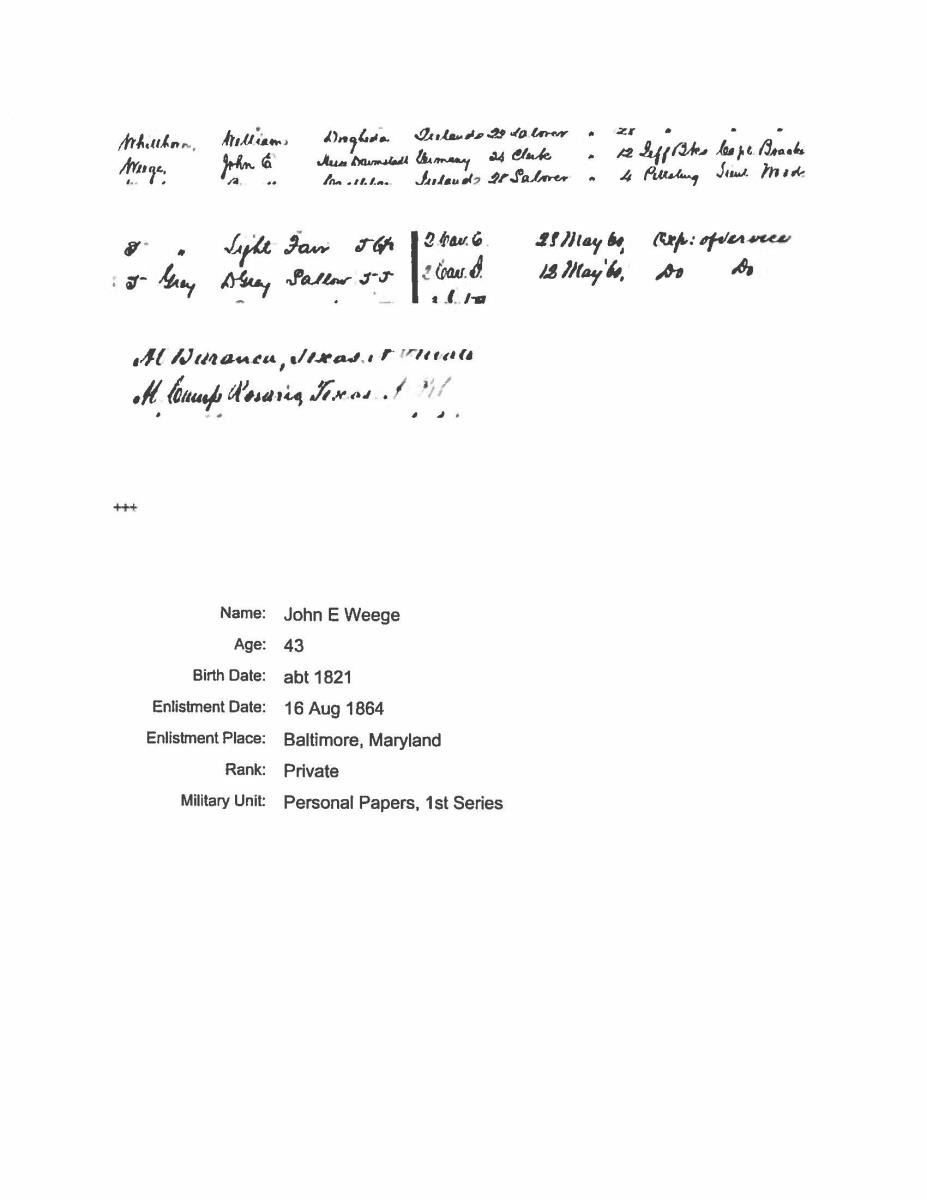 Whitthorn, William Drogheda Ireland 29 Laborer " 28 " " "
Weege, John E Hesse Darmstadt Germany 24 Clerk " 12 Jeff Bks Capt. Bracke
Ireland 28 Laborer " 4 Lieut
" Light Fair 5 6½ 2 Cav. C 28 May 60, Exp: of service
Grey D Grey Sallow 5-5 2 Cav. 12 May '60, Do Do
At Texas
At Camp Rosario, Texas. A
+++
Name: John E Weege
Age: 43
Birth Date: abt 1821
Enlistment Date: 16 Aug 1864
Enlistment Place: Baltimore, Maryland
Rank: Private
Military Unit: Personal Papers, 1st Series